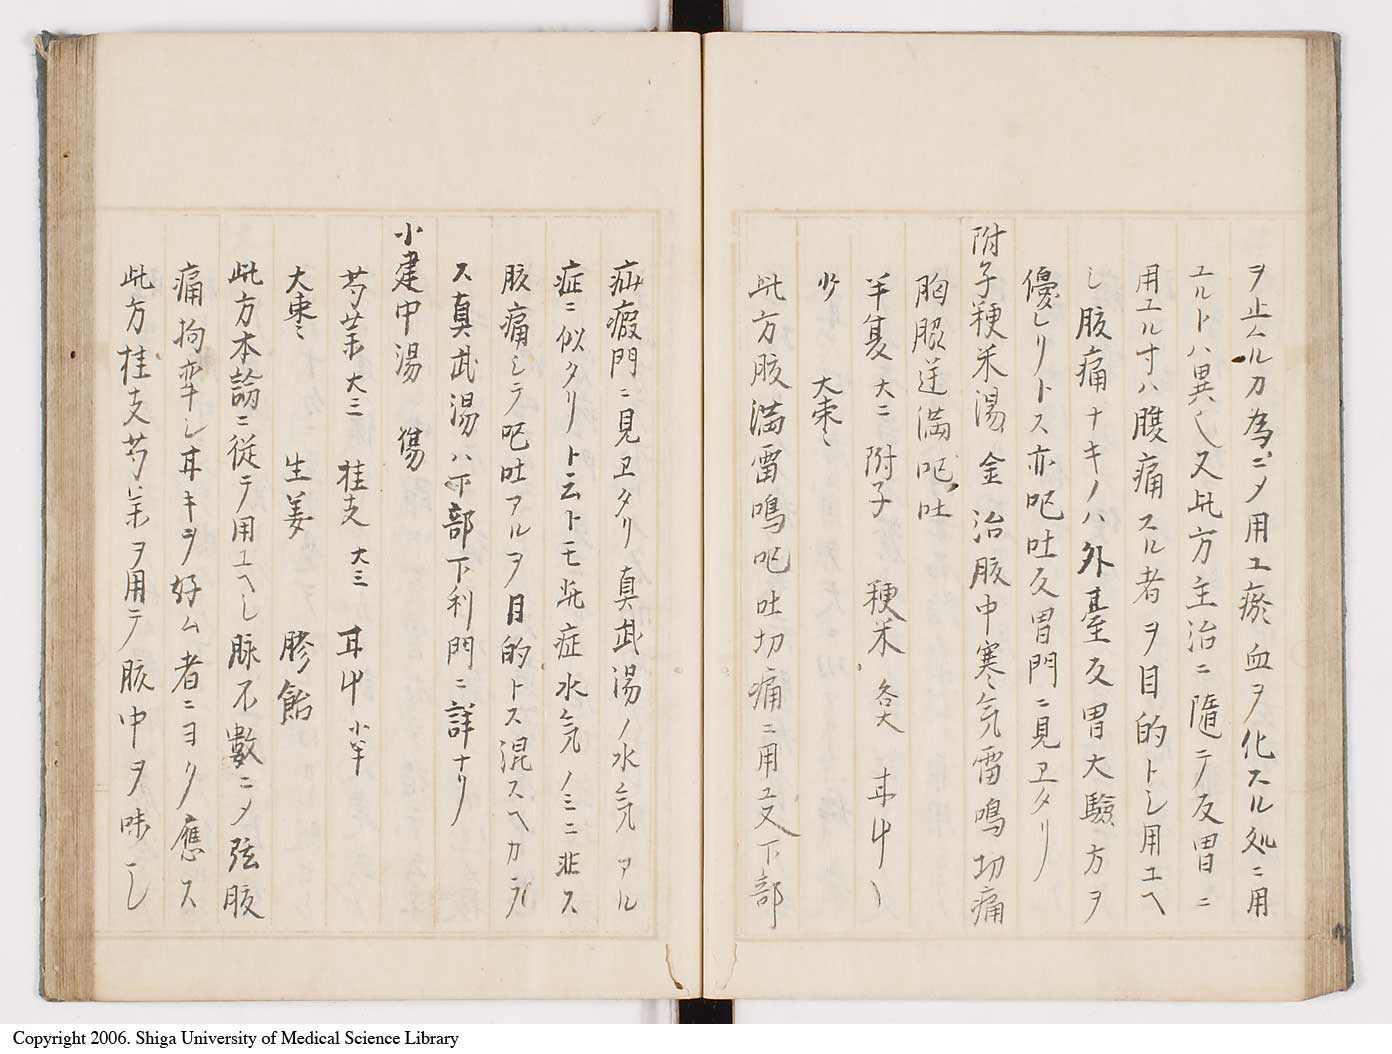 ヲ止ムルカ為ニメ用エ瘀血ヲ化スル処ニ用
エルトハ異也又此方主治ニ隨テ反胃ニ
用エル寸ハ腹痛スル者ヲ目的トシ用エヘ
シ腹痛ナキノハ外臺反胃大驗方ヲ
優レリトス亦呕吐反胃門ニ見ヱタリ
附子粳米湯 金 治腹中寒気雷鳴切痛
胸脇逆満呕吐
半夏 大二 附子 粳米 各大 甘艸
少 大棗
此方腹満雷鳴呕吐切痛ニ用エ又下部
疝瘕門ニ見ヱタリ真武湯ノ水気アル
症ニ似タリト云トモ此症水気ノミニ非ス
腹痛シテ呕吐アルヲ目的トス混スヘカラ
ス真武湯ハ下部下利門ニ詳ナリ
小建中湯 傷
芍薬 大三 桂支 大三 甘艸 小半
大棗 生姜 膠飴
此方本論ニ従テ用エヘシ脉不數ニメ弦腹
痛拘挛シ甘キヲ好ム者ニヨク應ス
此方桂支芍薬ヲ用テ腹中ヲ味シ
Copyright 2006. Shiga University of Medical Science Library